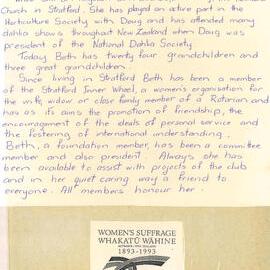 Church in Stratford. She has played an active part in the
Horticulture Society with Doug and has attended many
dahlia shows throughout New Zealand when Doug was
president of the National Dahlia Society.
Today Beth has twenty four grandchildren and
three great grandchildren.
Since living in Stratford Beth has been a member
of the Stratford Inner Wheel, a women's organisation for
the wife, widow or close family member of a Rotarian and
has as its aims the promotion of friendship, the
encouragement of the ideals of personal service and
the fostering of international understanding.
Beth, a foundation member, has been a committee
member and also president. Always she has
been available to assist with projects of the club
and in her quiet caring way a friend to
everyone. All members honour her.
WOMEN'S SUFFRAGE
WHAKATŪ WĀHINE
1893-1993